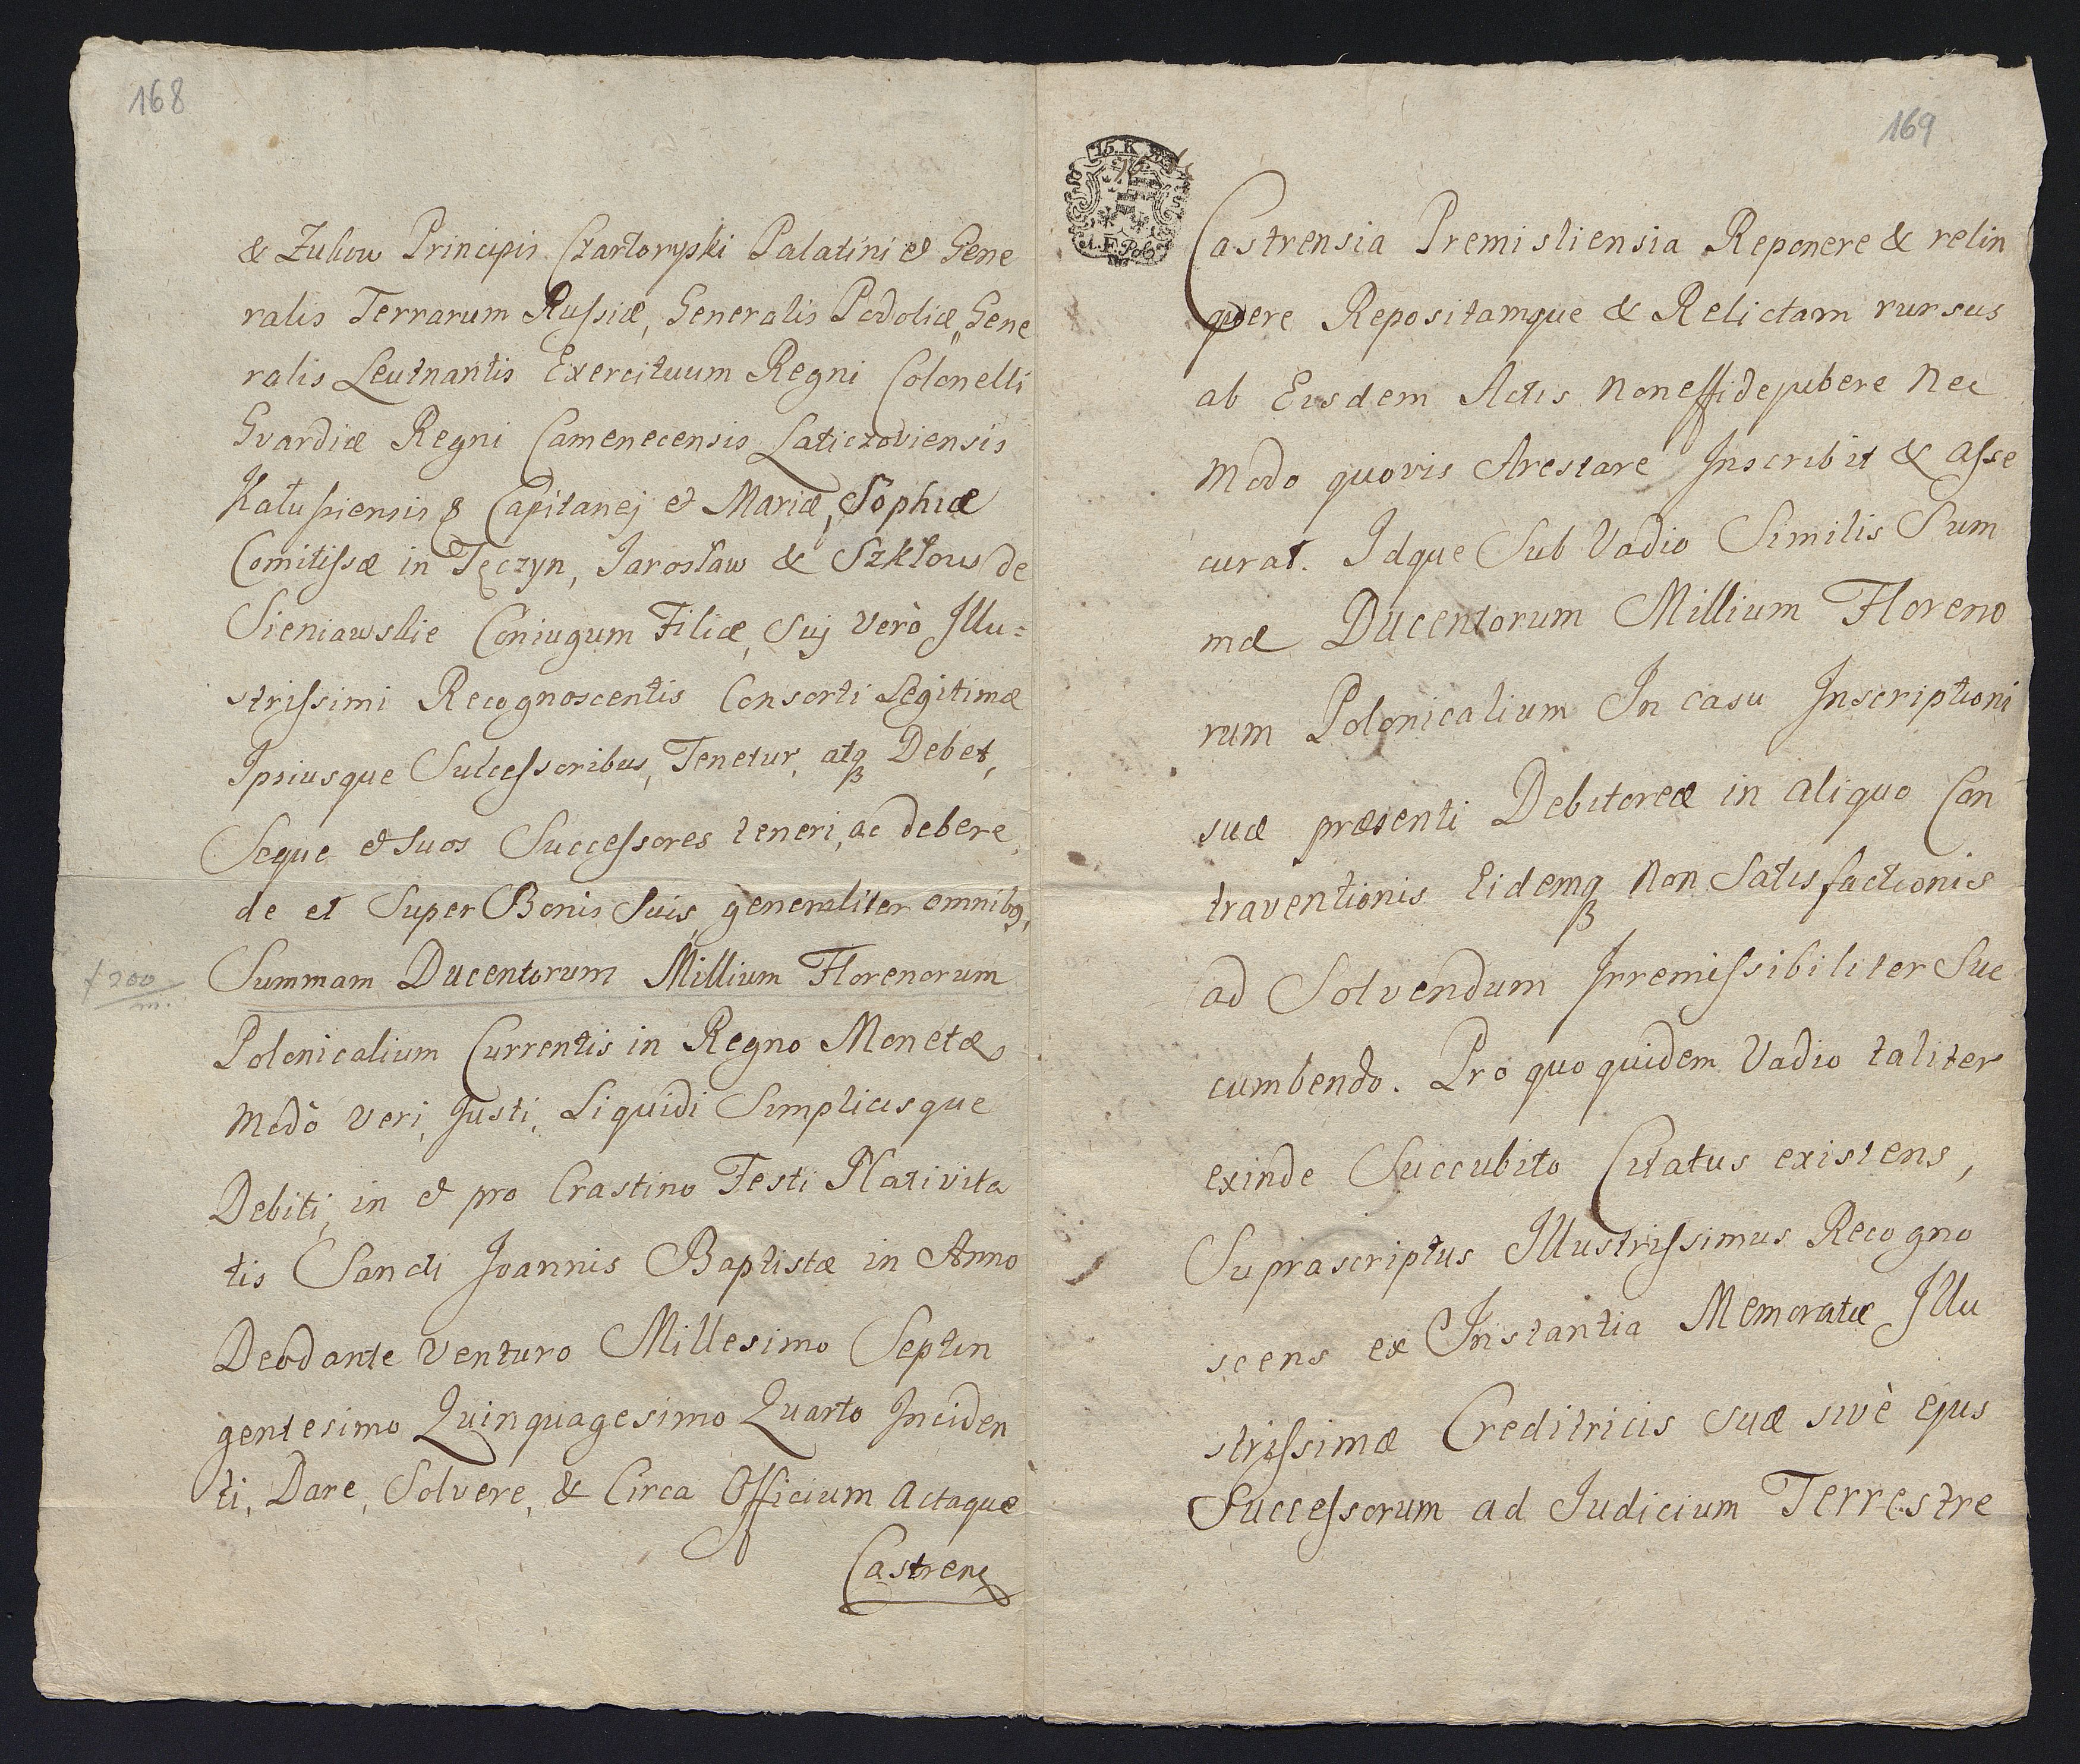 168
& Zukow Principis Czartoryski Palatini et Gene
ralis Terrarum Russiæ, Generalis Podoliæ, Gene
ralis Leutnantis Exercituum Regni Colonelli
Gvardiæ Regni Camenecensis Laticzoviensis
Kałussiensis & Capitanej et Mariæ, Sophiæ
Comitissæ in Tęczyn, Jarosław & Szkłow de
Sieniawskie Coniugum Filiæ, Suj verò Illu=
strissimi Recognoscentis Consorti Legitimæ
Ipsiusque Successoribus, Tenetur, atq Debet,
Seque et suos Successores teneri, ac debere,
de et Super Bonis suis generaliter omnibq,
f 200
m.
Summam Ducentorum Millium Florenorum
Polonicalium Currentis in Regno Monetæ
Modò veri, Justi, Liquidi Simplicisque
Debiti, in et pro Crastino Festi Nativita
tis Sancti Joannis Baptistæ in Anno
Deodante venturo Millesimo Septin
gentesimo Quinquagesimo Quarto Inciden
ti, Dare, Solvere, & Circa Officium Actaque
Castrens
169
15. K
Castrensia Premisliensia Reponere & relin
quere Repositamque & Relictam rursus
ab Eisdem Actis non effidejubere Nec
Modo quovis Arestare Inscribit & asse
curat. Idque Sub Vadio Similis Sum
mæ Ducentorum Millium Floreno
rum Polonicalium In casu Inscriptioni
suæ præsenti Debitoreæ in aliquo Con
traventionis Eidemq Non Satisfactionis
ad Solvendum Irremissibiliter Suc
cumbendo. Pro quo quidem Vadio taliter
exinde Succubito Citatus existens,
Suprascriptus Illustrissimus Recogno
scens ex Instantia Memoratæ Illu
strissimæ Creditricis suæ sivè ejus
Successorum ad Judicium Terrestre